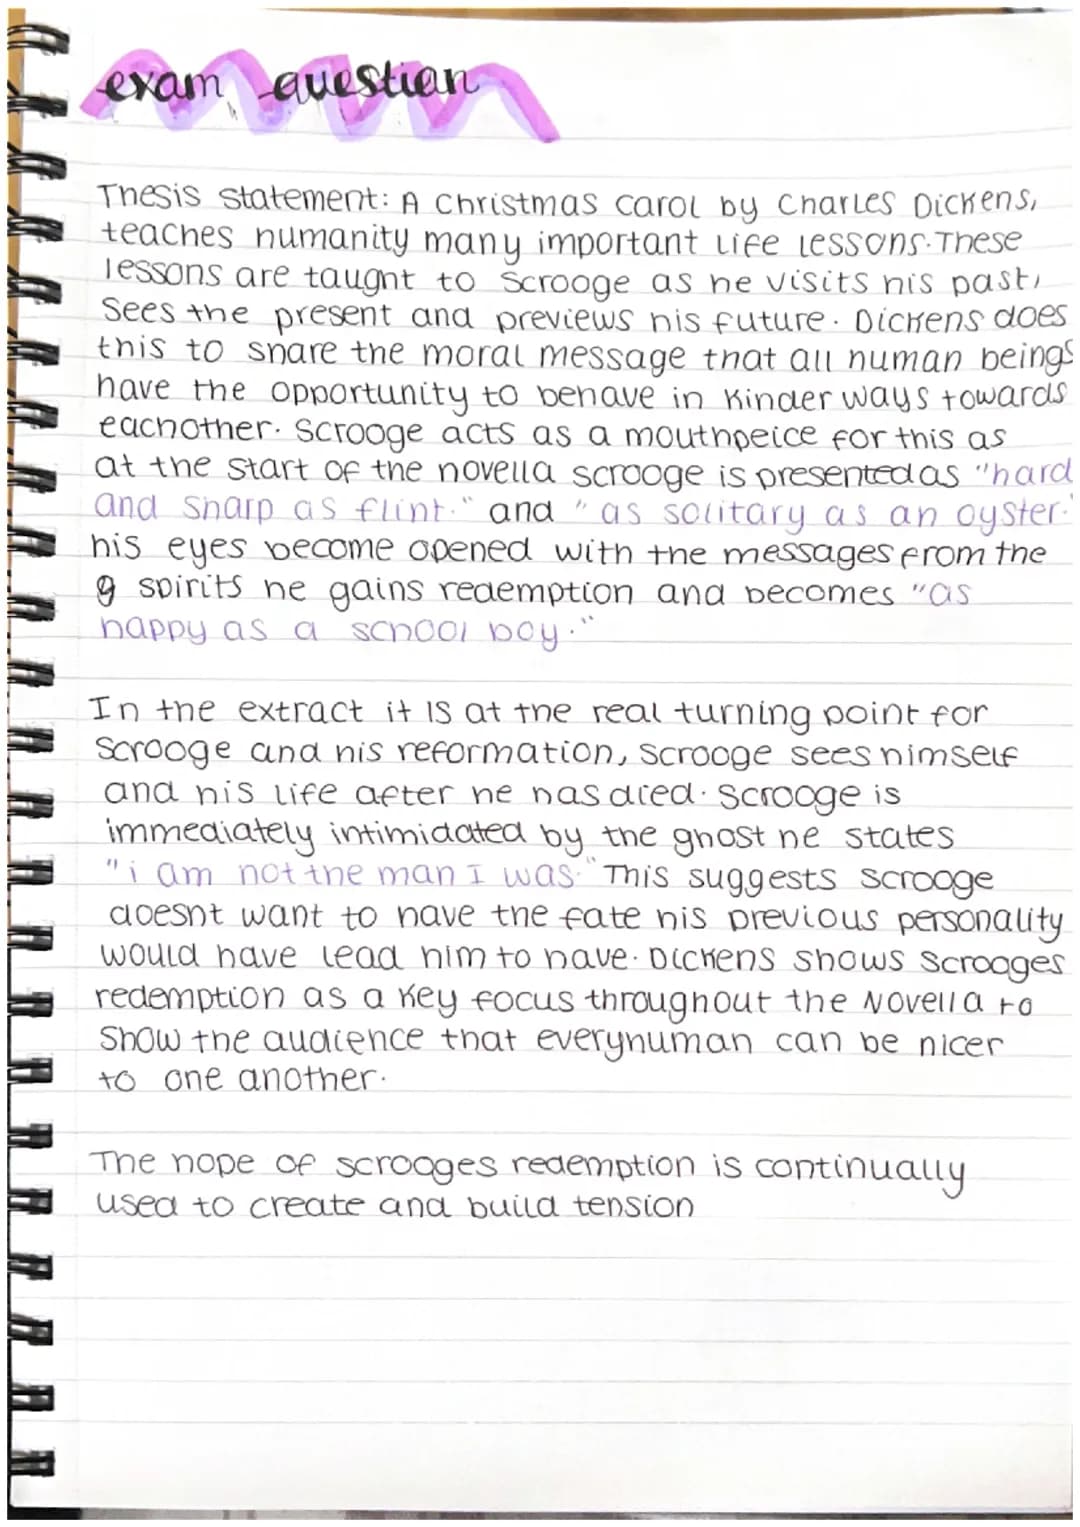 exam question
Thesis statement: A Christmas carol by Charles Dickens,
teaches humanity many important life lessons. These
lessons are taught to Scrooge as he visits his past,
Sees the present and previews his future. Dickens does
this to share the moral message that all human beings
have the opportunity to behave in kinder ways towards
eachother. Scrooge acts as a mouthpeice for this as
at the start of the novella scrooge is presented as "hard
and sharp as flint." and "as solitary as an oyster."
his eyes become opened with the messages from the
g spirits he gains redemption and becomes "as
happy as a school boy."
In the extract it is at the real turning point for
Scrooge and his reformation, Scrooge sees himself
and his life after he has died. Scrooge is
immediately intimidated by the ghost he states
"i am not the man I was." This suggests scrooge
doesnt want to have the fate his previous personality
would have lead him to have. Dickens shows Scrooges
redemption as a key focus throughout the Novella to
show the audience that everyhuman can be nicer
to one another.
The hope of scrooges redemption is continually
used to create and build tension